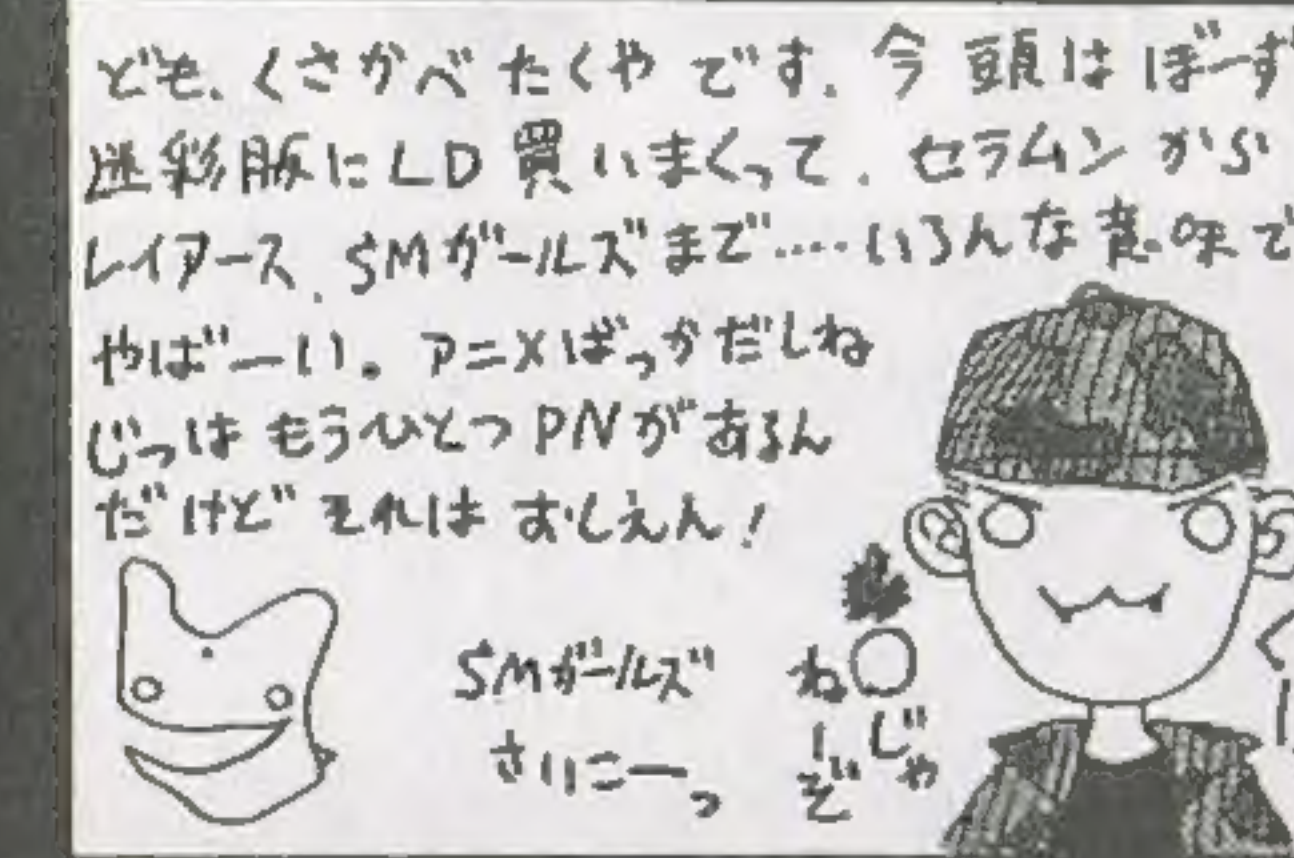 ども、くさかべたくやです。今頭はぼーず
迷彩服にLD買いまくって、セラムンから
レイアース、SMガールズまで‥‥いろんな意味で
やばーい。アニメばっかだしね
じつはもうひとつPNがあるん
だけどそれはおしえん!
SMガールズ
さいこーっ